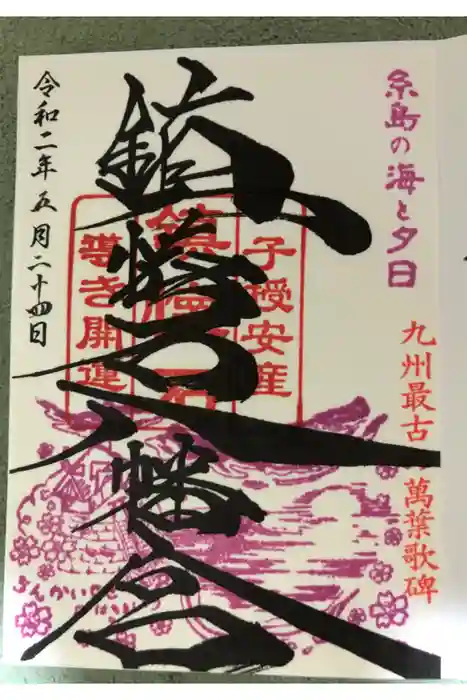 糸島の海と夕日
九州最古
萬葉歌碑
子授安産
鎮懐石
導き開運
鎮懐石八幡宮
令和二年五月二十四日